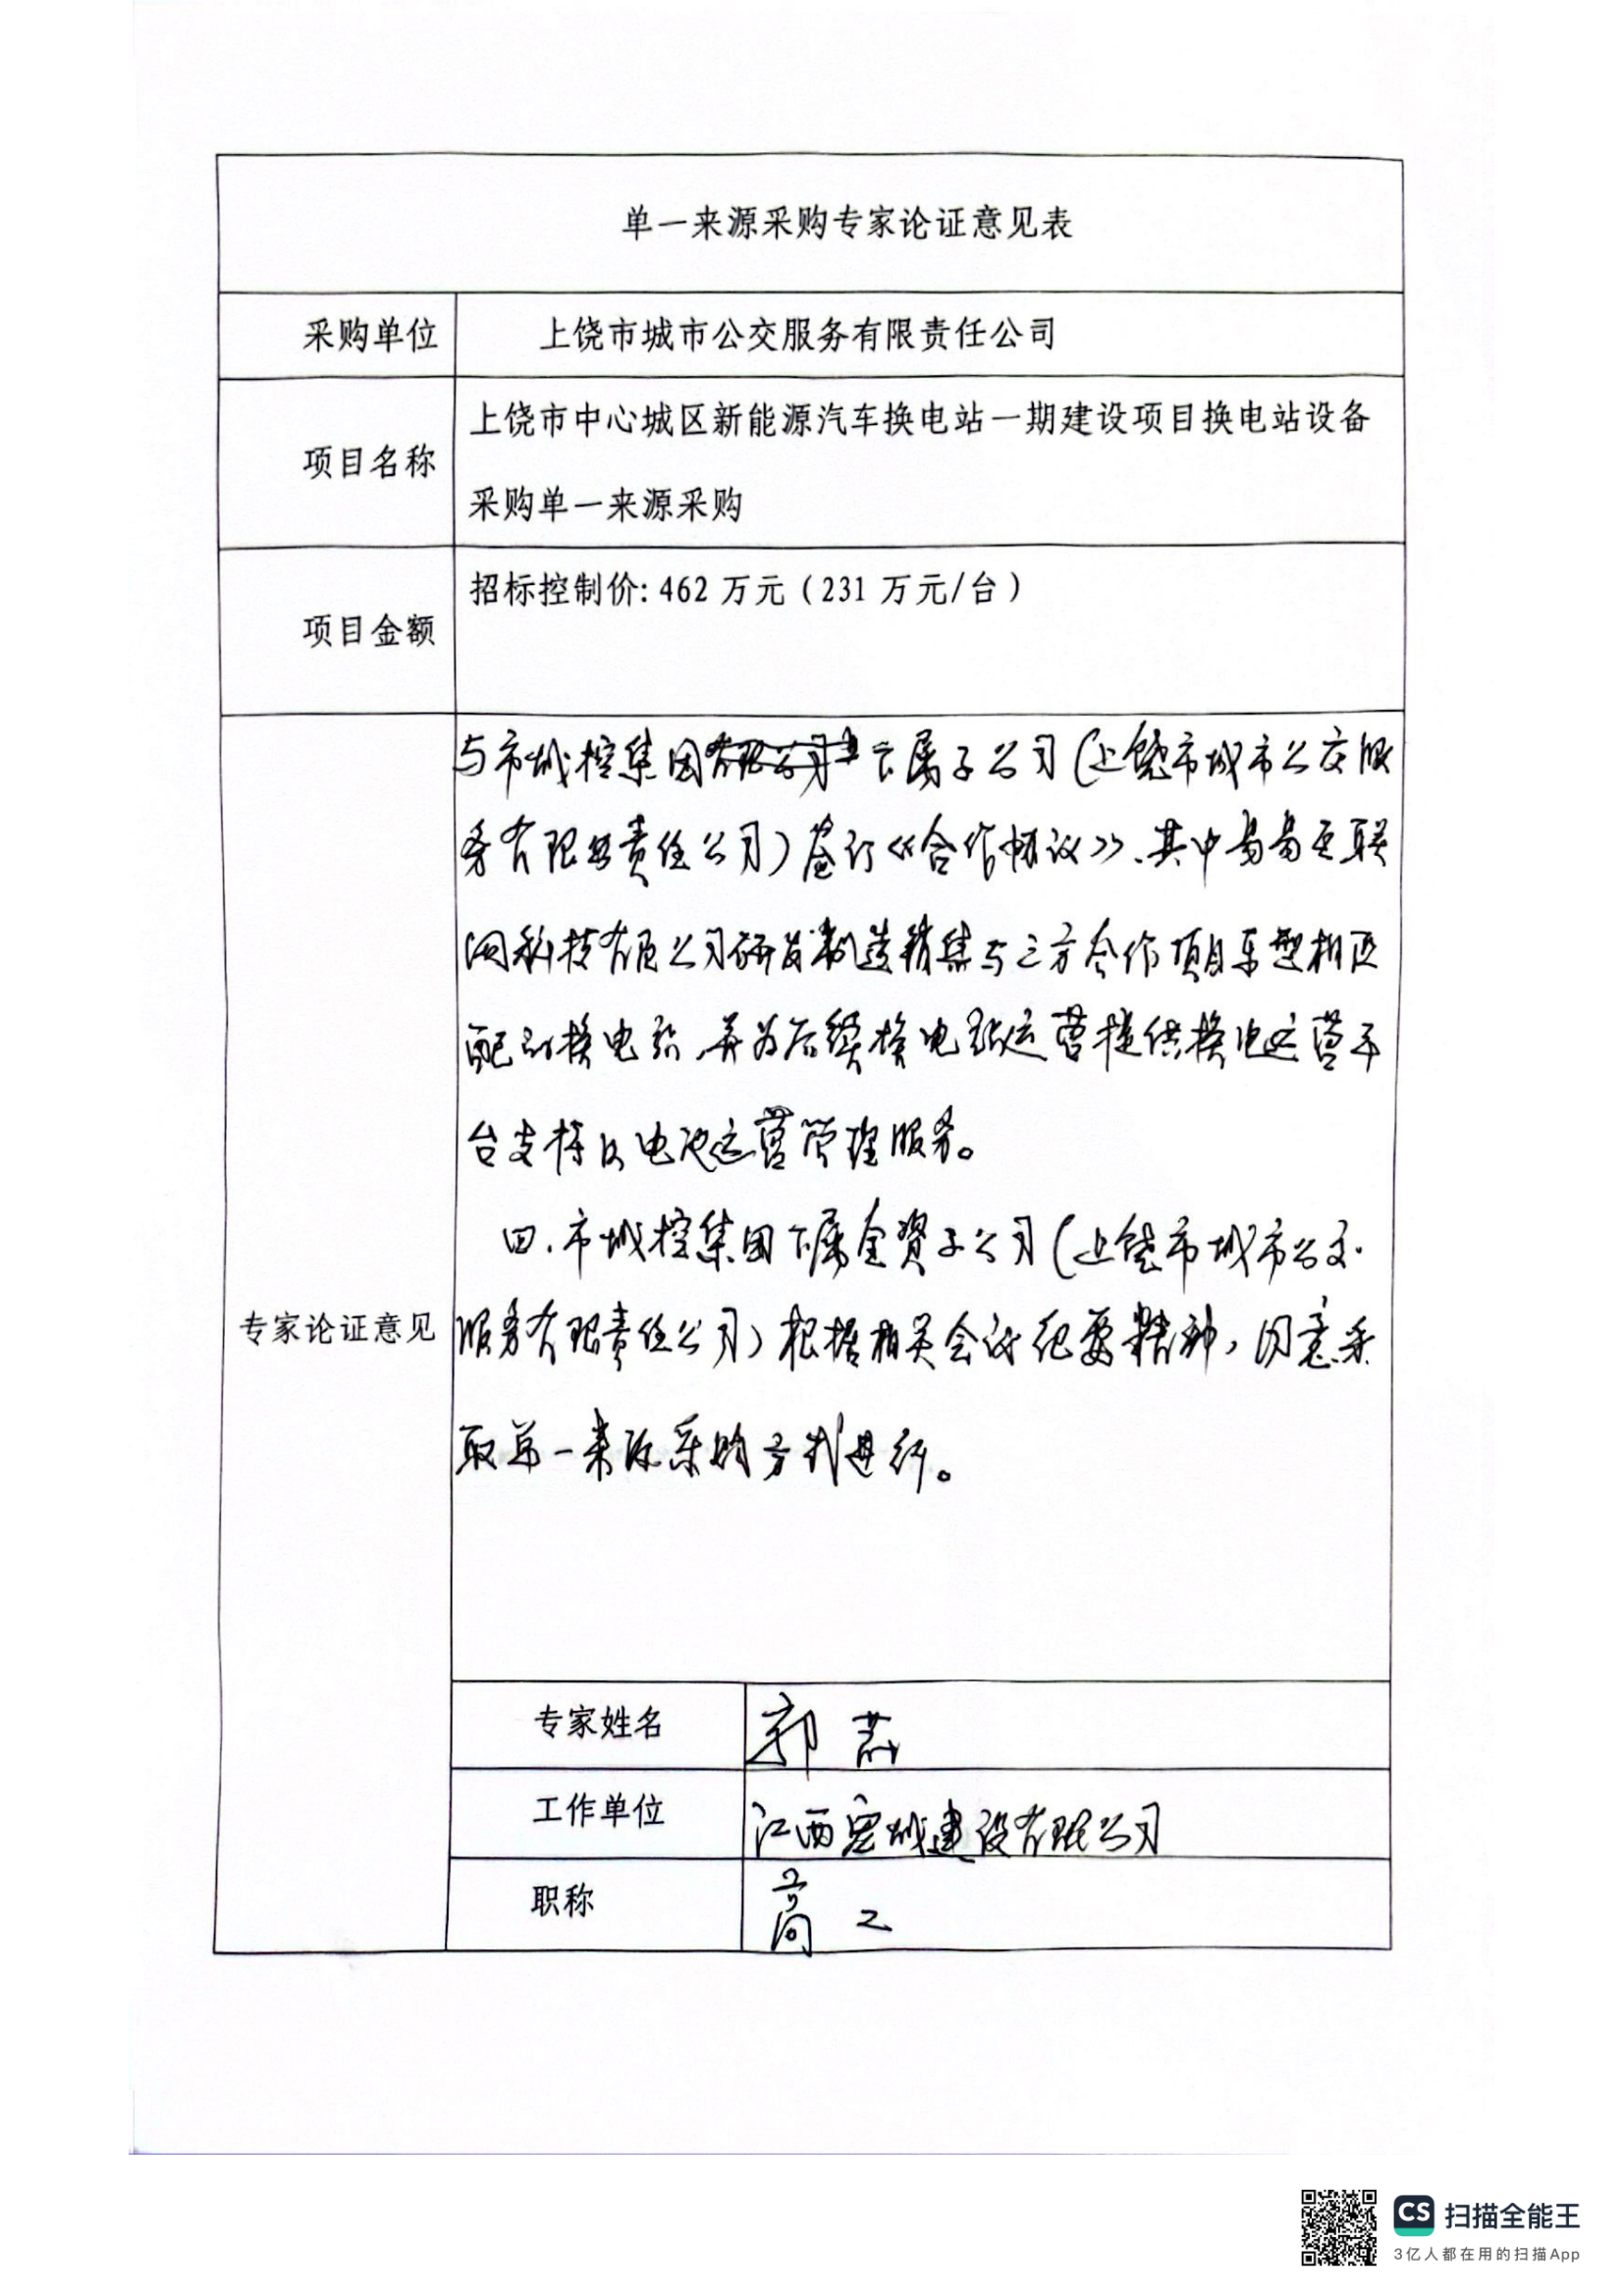 单一来源采购专家论证意见表
采购单位
上饶市城市公交服务有限责任公司
项目名称
上饶市中心城区新能源汽车换电站一期建设项目换电站设备
采购单一来源采购
项目金额
招标控制价: 462 万元（231 万元/台）
专家论证意见
与市城控集团下属子公司(上饶市城市公交服
务有限责任公司)签订《合作协议》、其中易易互联
网科技有限公司研发制造销售与三方合作项目车型相匹
配的换电站,并为后续换电站运营提供换电运营平
台支持及电池运营管理服务。
四.市城控集团下属全资子公司(上饶市城市公交
服务有限责任公司)根据相关会议纪要精神,同意采
取单一来源采购方式进行。
专家姓名
郭
工作单位
江西宏城建设有限公司
职称
高工
CS 扫描全能王
3亿人都在用的扫描App